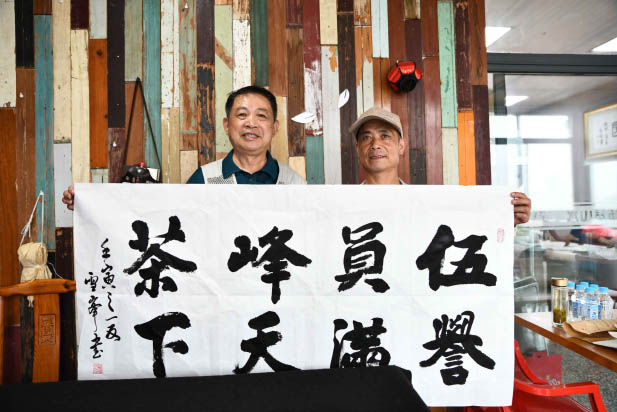 伍員峰茶
譽滿天下
壬寅之夏
雪峯書